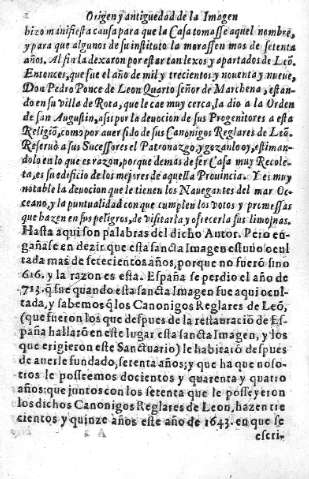 2 Origen y antiguedad de la Imagen
hizo manifiesta causa para que la Casa tomasse aquel nombre,
y para que algunos de su instituto la morassen mas de setenta
años. Al fin la dexaron por estar tan lexos y apartados de Leō.
Entonces, que fue el año de mil y trecientos y nouenta y nueue,
Don Pedro Ponce de Leon Quarto señor de Marchena, estan-
do en su villa de Rota, que le cae muy cerca, la dio a la Orden
de san Augustin, assi por la deuocion de sus Progenitores a esta
Religiō, como por auer sido de sus Canonigos Reglares de Leō.
Reseruò a sus Successores el Patronazgo, y gozanlo oy, estiman-
dolo en lo que es razon, porque demàs de ser Casa muy Recole-
ta, es su edificio de los mejores de aquella Provincia. Y es muy
notable la deuocion que le tienen los Nauegantes del mar Oc-
ceano, y la puntualidad con que cumplen los votos y promessas
que hazen en sus peligros, de visitarla y ofrecerla sus limosnas.
Hasta aqui son palabras del dicho Autor. Pero en-
gañase en dezir que esta sancta Imagen estuuo ocul
tada mas de setecientos años, porque no fuerō sino
616. y la razon es esta. España se perdio el año de
713. q̄ fue quando esta sancta Imagen fue aqui ocul
tada, y sabemos q̄ los Canonigos Reglares de Leō,
(que fueron los que despues de la restauraciō de Es-
paña hallarō en este lugar esta sancta Imagen, y los
que erigieron este Sanctuario) le habitarō despues
de auerle fundado, setenta años; y que ha que noso-
tros le posseemos docientos y quarenta y quatro
años: que juntos con los setenta que le posseyeron
los dichos Canonigos Reglares de Leon, hazen tre
cientos y quinze años este año de 1643. en que se
A
escri-